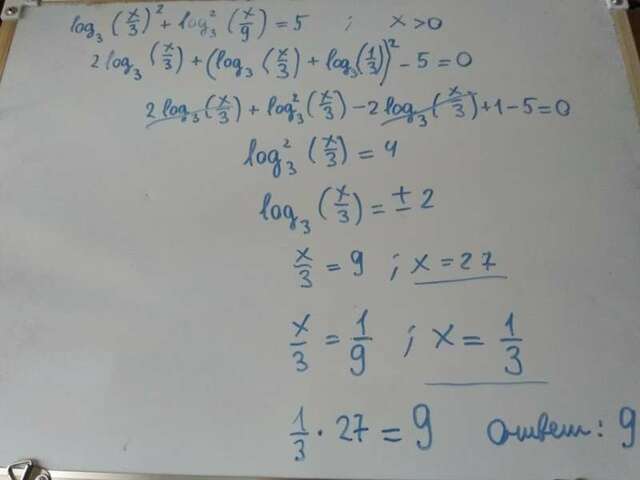 log₃(x/3)² + log₃²(x/9) = 5 ; x > 0
2log₃(x/3) + (log₃(x/3) + log₃(1/3))² - 5 = 0
2log₃(x/3) + log₃²(x/3) - 2log₃(x/3) + 1 - 5 = 0
log₃²(x/3) = 4
log₃(x/3) = ± 2
x/3 = 9 ; x = 27
x/3 = 1/9 ; x = 1/3
1/3 · 27 = 9 Ответ: 9